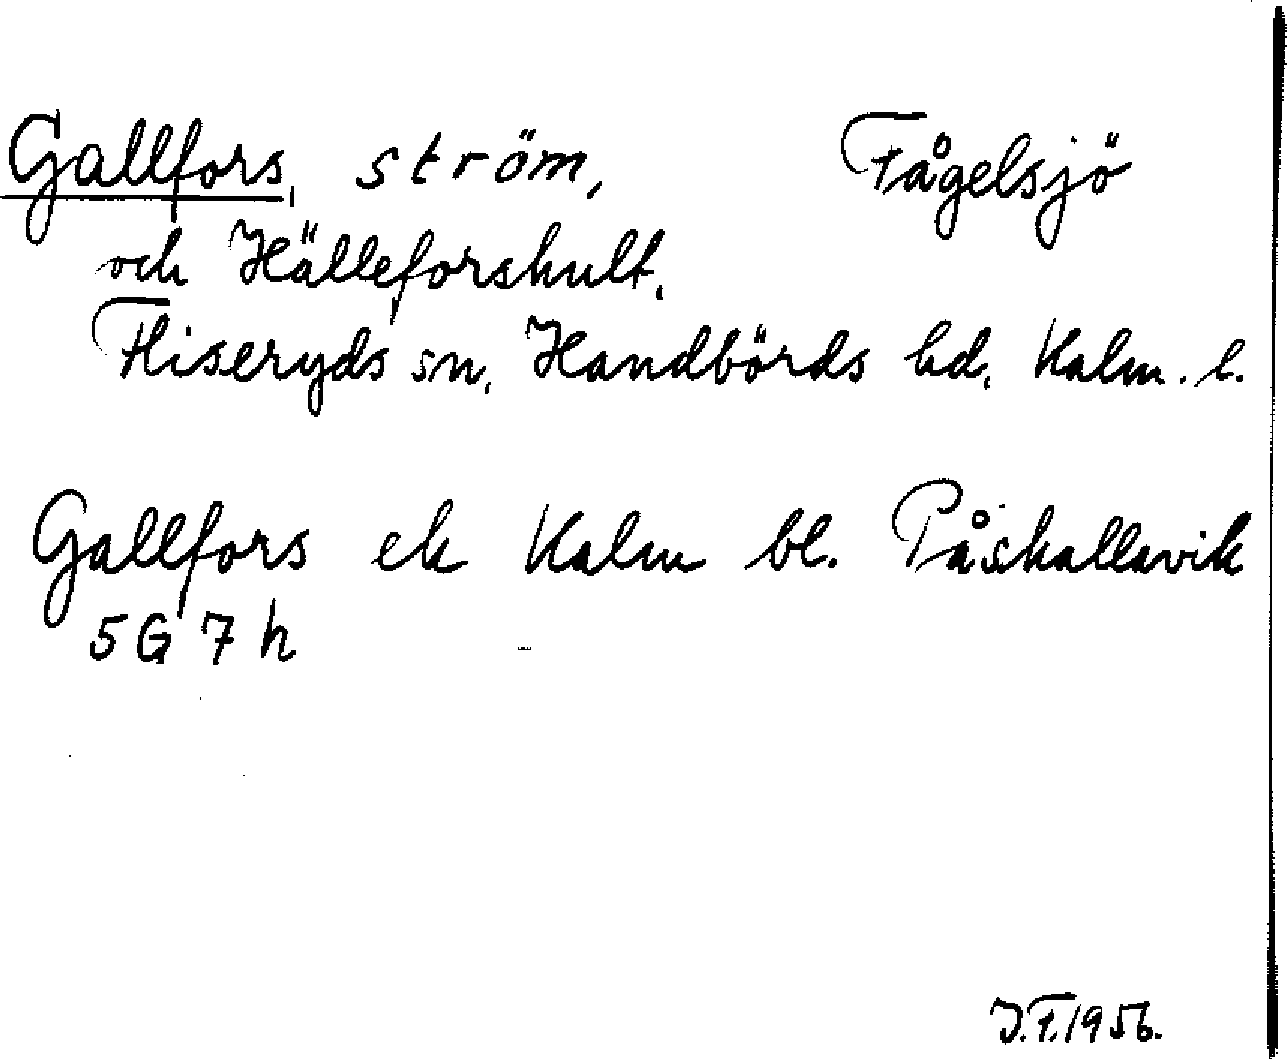 Gallfors, ström, Fågelsjö
och Hälleforshult,
Fliseryds sn, Handbörds hd, Kalm. l.
Gallfors ek Kalm bl. Påskallavik
5G 7h
J.F. 1956.